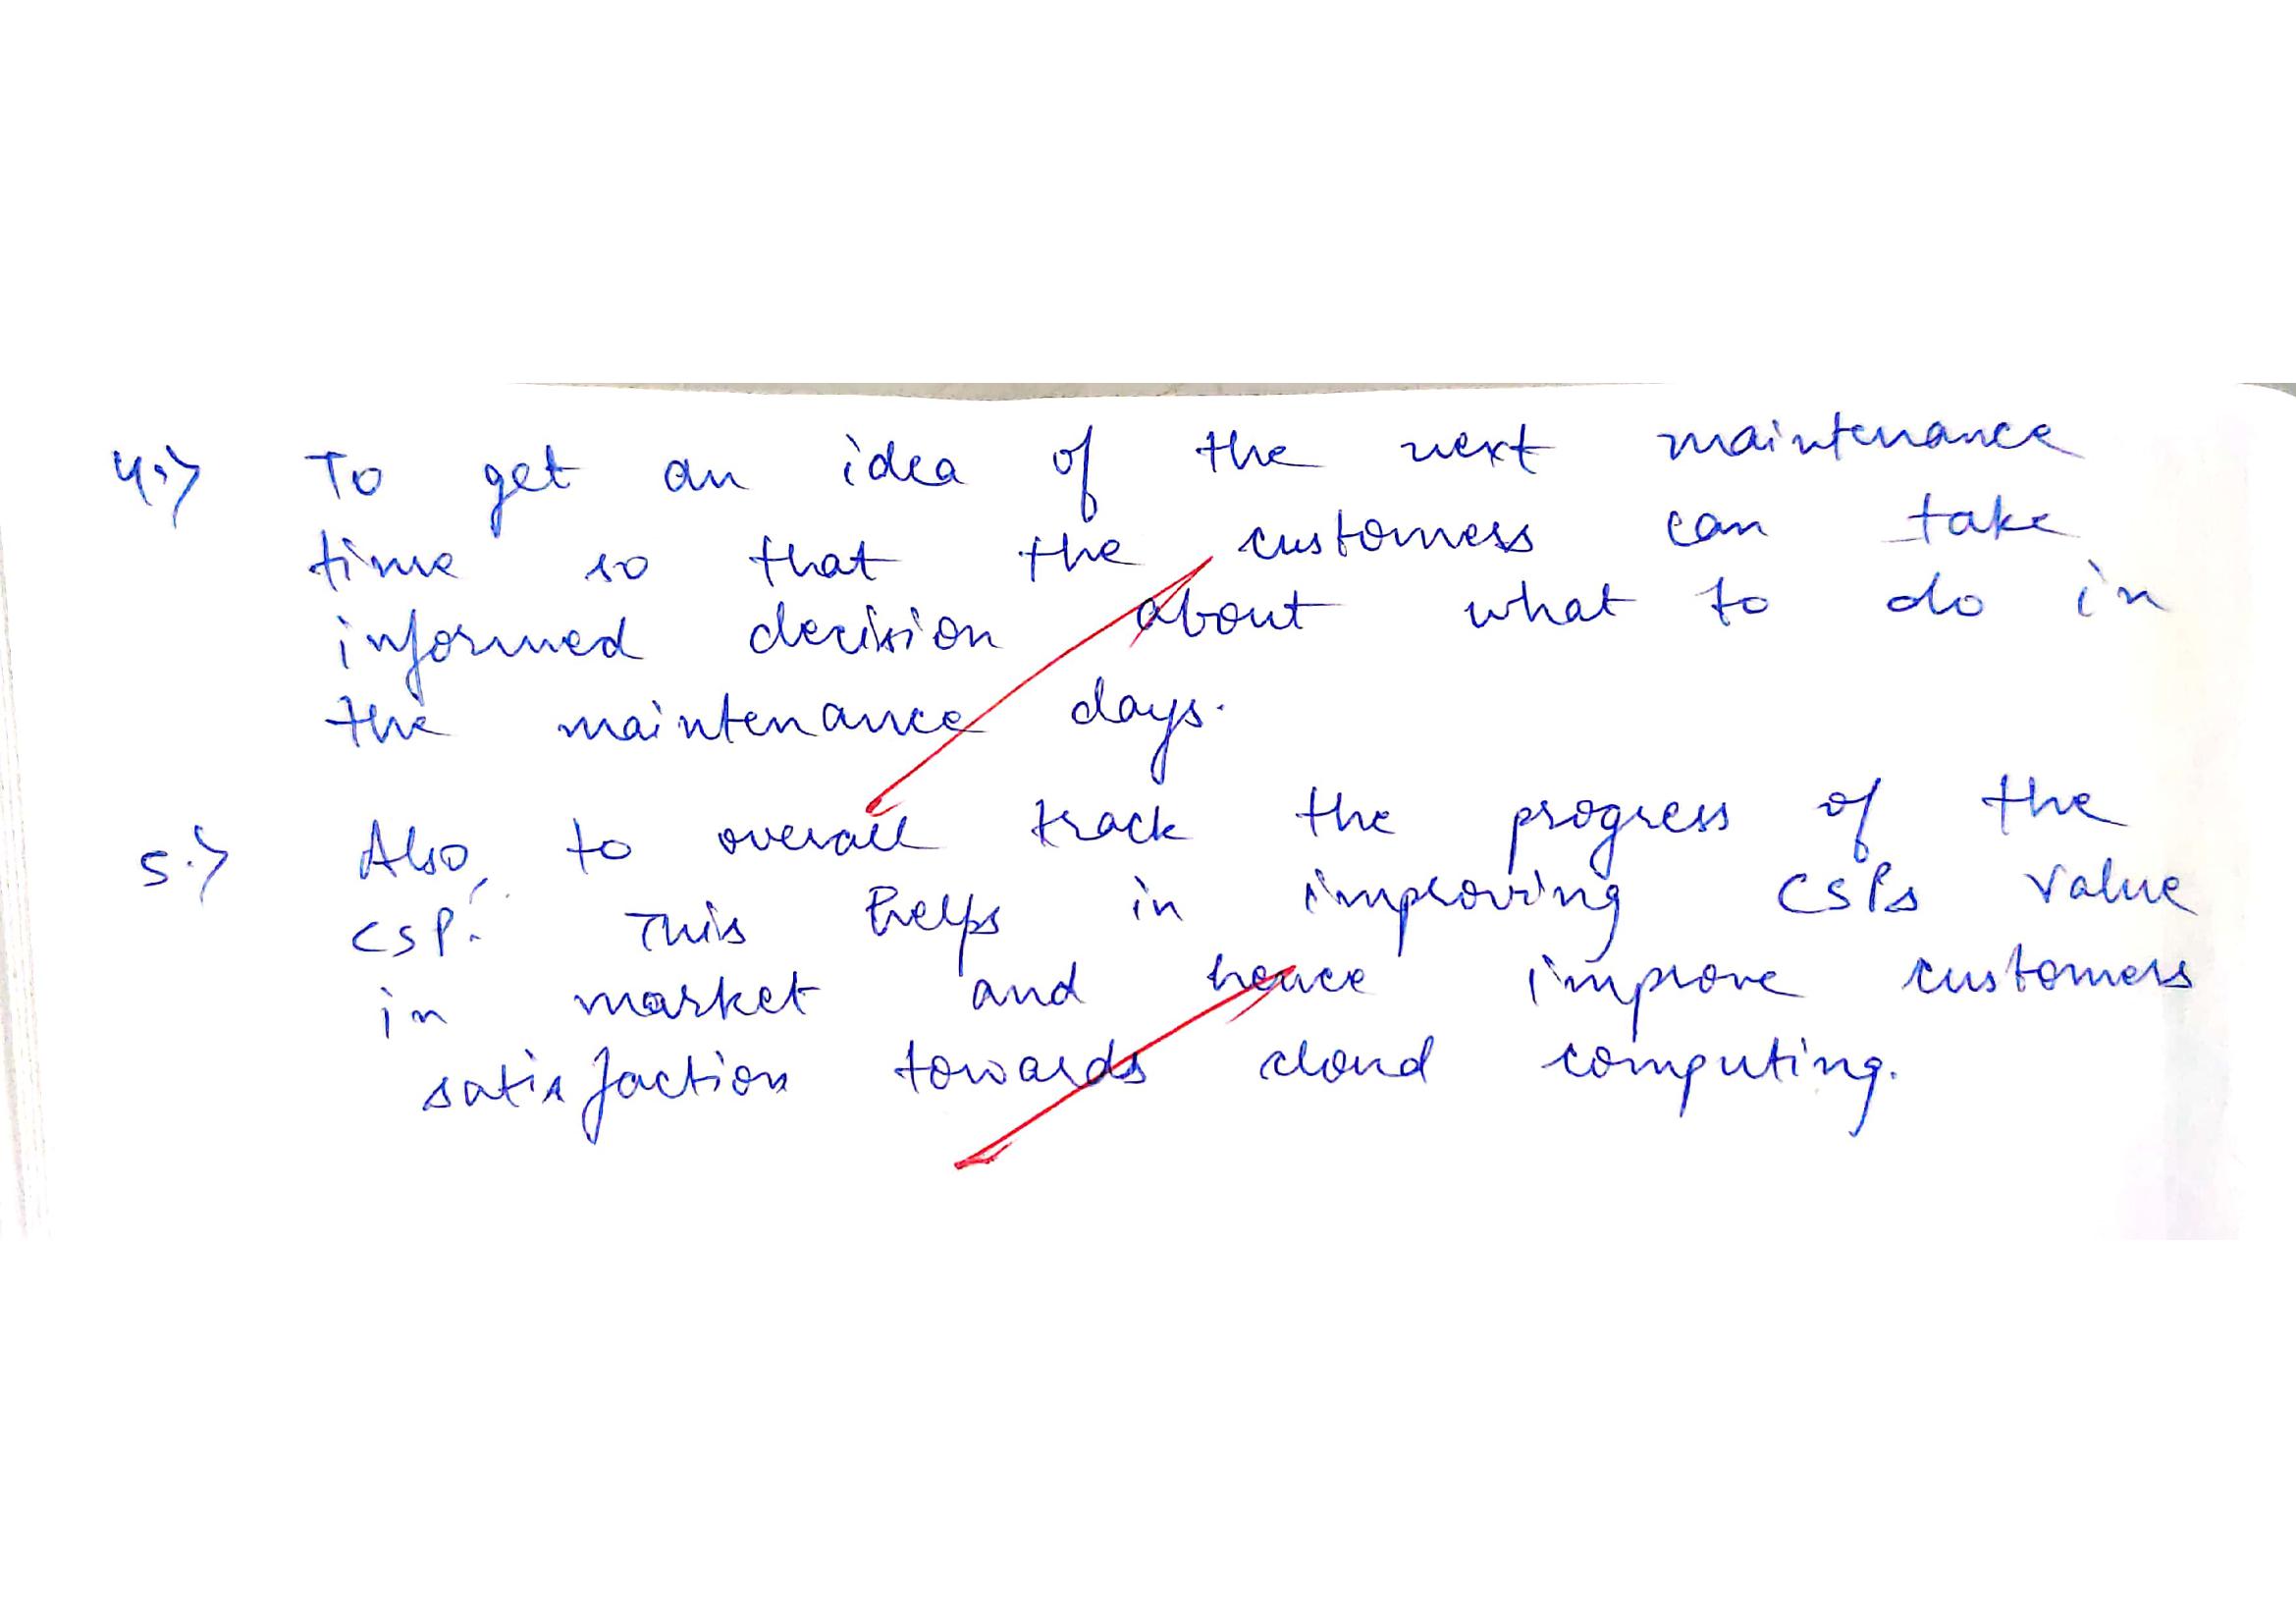 4.) To get an idea of the next maintenance
time so that the customers can take
informed decision about what to do in
the maintenance days.
5.) Also, to overall track the progress of the
CSP. This helps in improving CSPs value
in market and hence improve customers
satisfaction towards cloud computing.